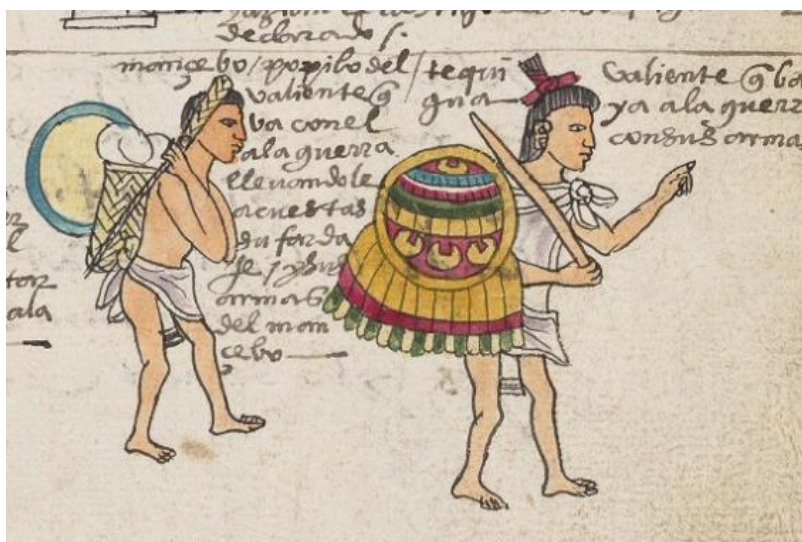 declarado /.
mançebo / popilo del
valiente q̃
va con el
a la guerra
llevandole
acuestas
su farda
je / y sus
armas
del man
çebo
tequi
gua
valiente q̃ ba
ya a la guerra
con sus armas
tar
ala